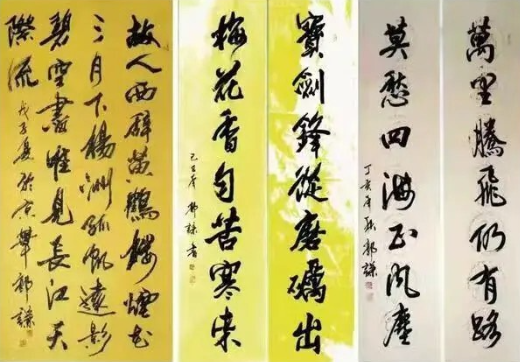 萬里騰飛仍有路
莫愁四海正風塵
丁亥年秋郭謙
寶劍鋒從磨礪出
梅花香自苦寒来
己丑年郭謙書
故人西辭黃鶴樓煙花
三月下楊洲孤帆遠影
碧空盡惟見長江天
際流
戊子夏於京華郭謙